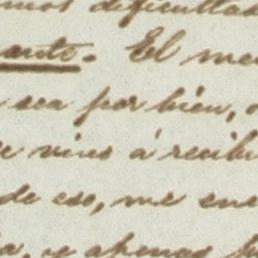 mos dificultad
ente. El me
sea por bien,
vino á recibi
de eso, me enc
a, y apenas